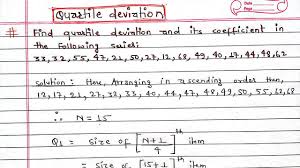 Quartile deviation
# Find quartile deviation and its coefficient in
the following series:
33, 32, 55, 47, 21, 50, 27, 12, 68, 49, 40, 17, 44, 48, 62
Solution : Here, Arranging in ascending order then,
12, 17, 21, 27, 32, 33, 40, 44, 47, 48, 49, 50, 55, 62, 68
∴ N = 15
Q1 = size of [N+1/4]th item
= size of [15+1]th item